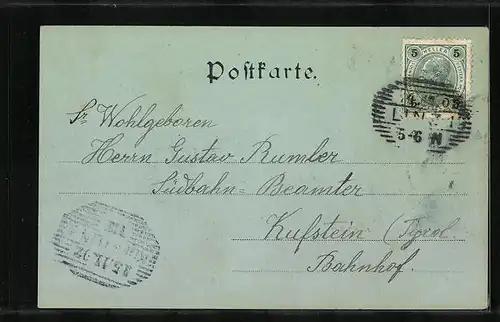 5 HELLER 5
Postkarte.
LINZ
5-6 N
Sr Wohlgeboren
Herrn Gustav Rumler
Südbahn-Beamter
Kufstein (Tyrol.
Bahnhof.